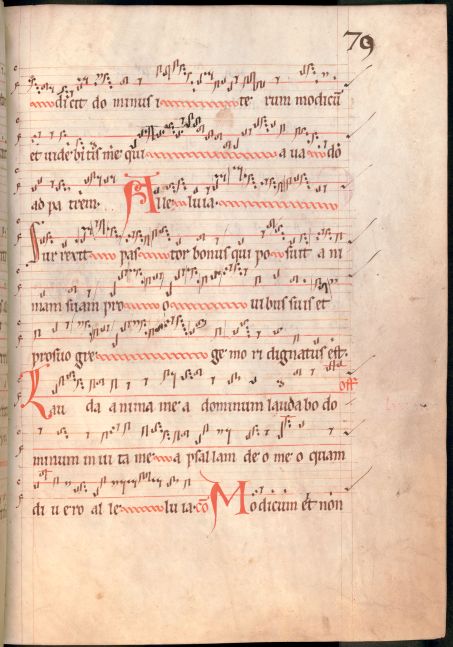 79
dicit do minus i te rum modicū
et uidebitis me qui a ua do
ad pa trem. Alle luia.
Surrexit pas tor bonus qui po suit a ni
mam suam pro o uibus suis et
pro suo gre ge mo ri dignatus est.
off
Lau da anima me a dominum laudabo do
minum in ui ta me a psallam de o me o quam
di u ero al le lu ia. cō Modicum et non